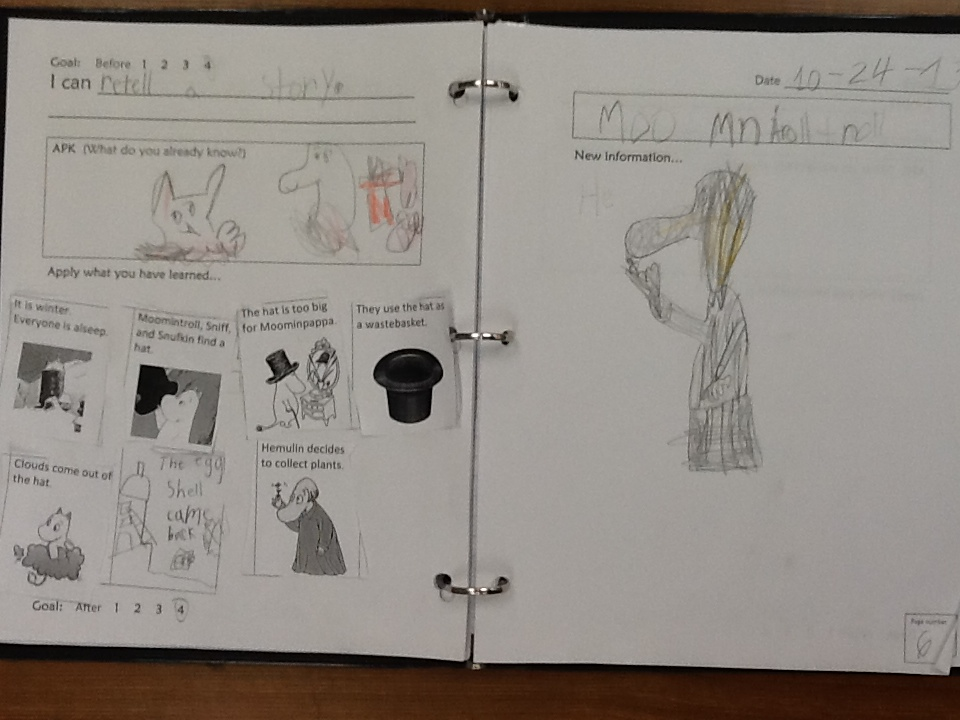 Goal: Before 1 2 3 4
I can retell a story.
APK (What do you already know?)
Apply what you have learned...
It is winter.
Everyone is alseep.
Moomintroll, Sniff,
and Snufkin find a
hat.
The hat is too big
for Moominpappa.
They use the hat as
a wastebasket.
Clouds come out of
the hat.
The egg
Shell
came
back
Hemulin decides
to collect plants.
Goal: After 1 2 3 4
Date 10-24-13
Moo mntroll
New information...
He
Page number
6